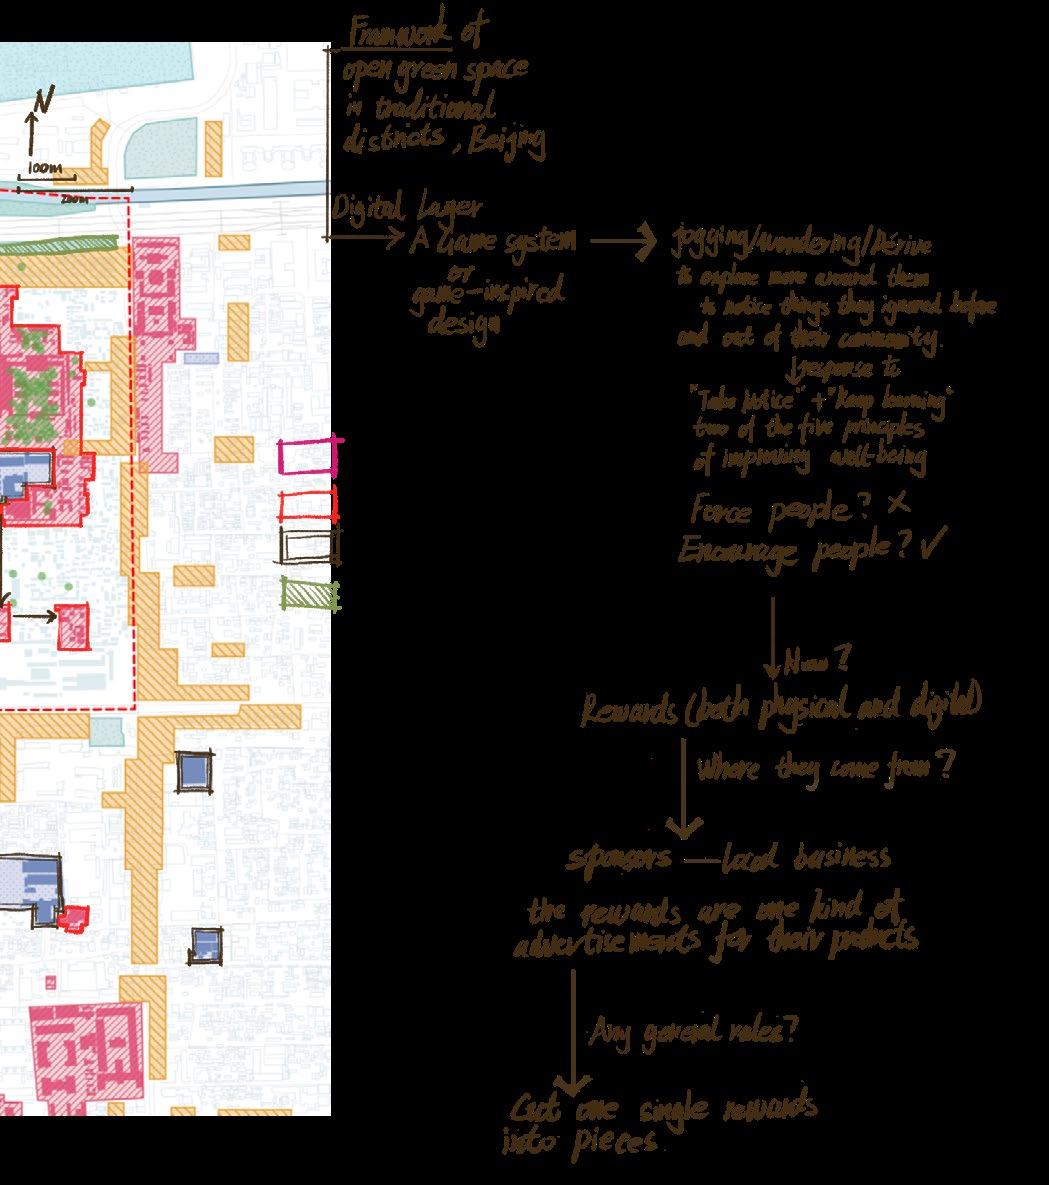 N
100m
200m
Framwork of
open green space
in traditional
districts, Beijing
Digital Layer
A Game system
or
game-inspired
design
jogging/wondering/Dérive
to explore more around them
to notice things they ignored before
and out of their community.
response to
"Take Notice" + "Keep learning"
two of the five principles
of improving well-being
Force people? ×
Encourage people? ✓
How?
Rewards (both physical and digital)
Where they come from?
sponsors — local business
the rewards are one kind of
advertisements for their products
Any general rules?
Cut one single rewards
into pieces.